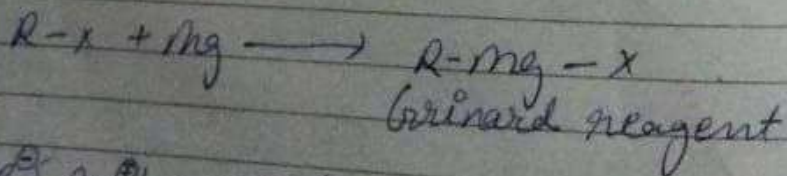 R-x + mg ⟶ R-mg-x
Grinard reagent